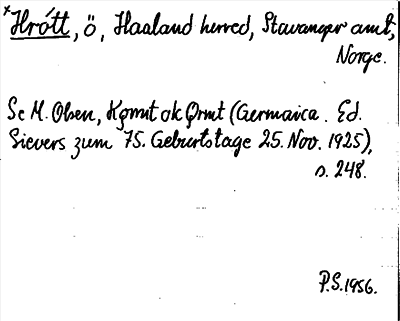 *Hrótt, ö, Haaland herred, Stavanger amt,
Norge.
Se M. Olsen, Kǫrmt ok Ǫrmt (Germanica. Ed.
Sievers zum 75. Geburtstage 25. Nov. 1925),
s. 248.
P.S. 1956.